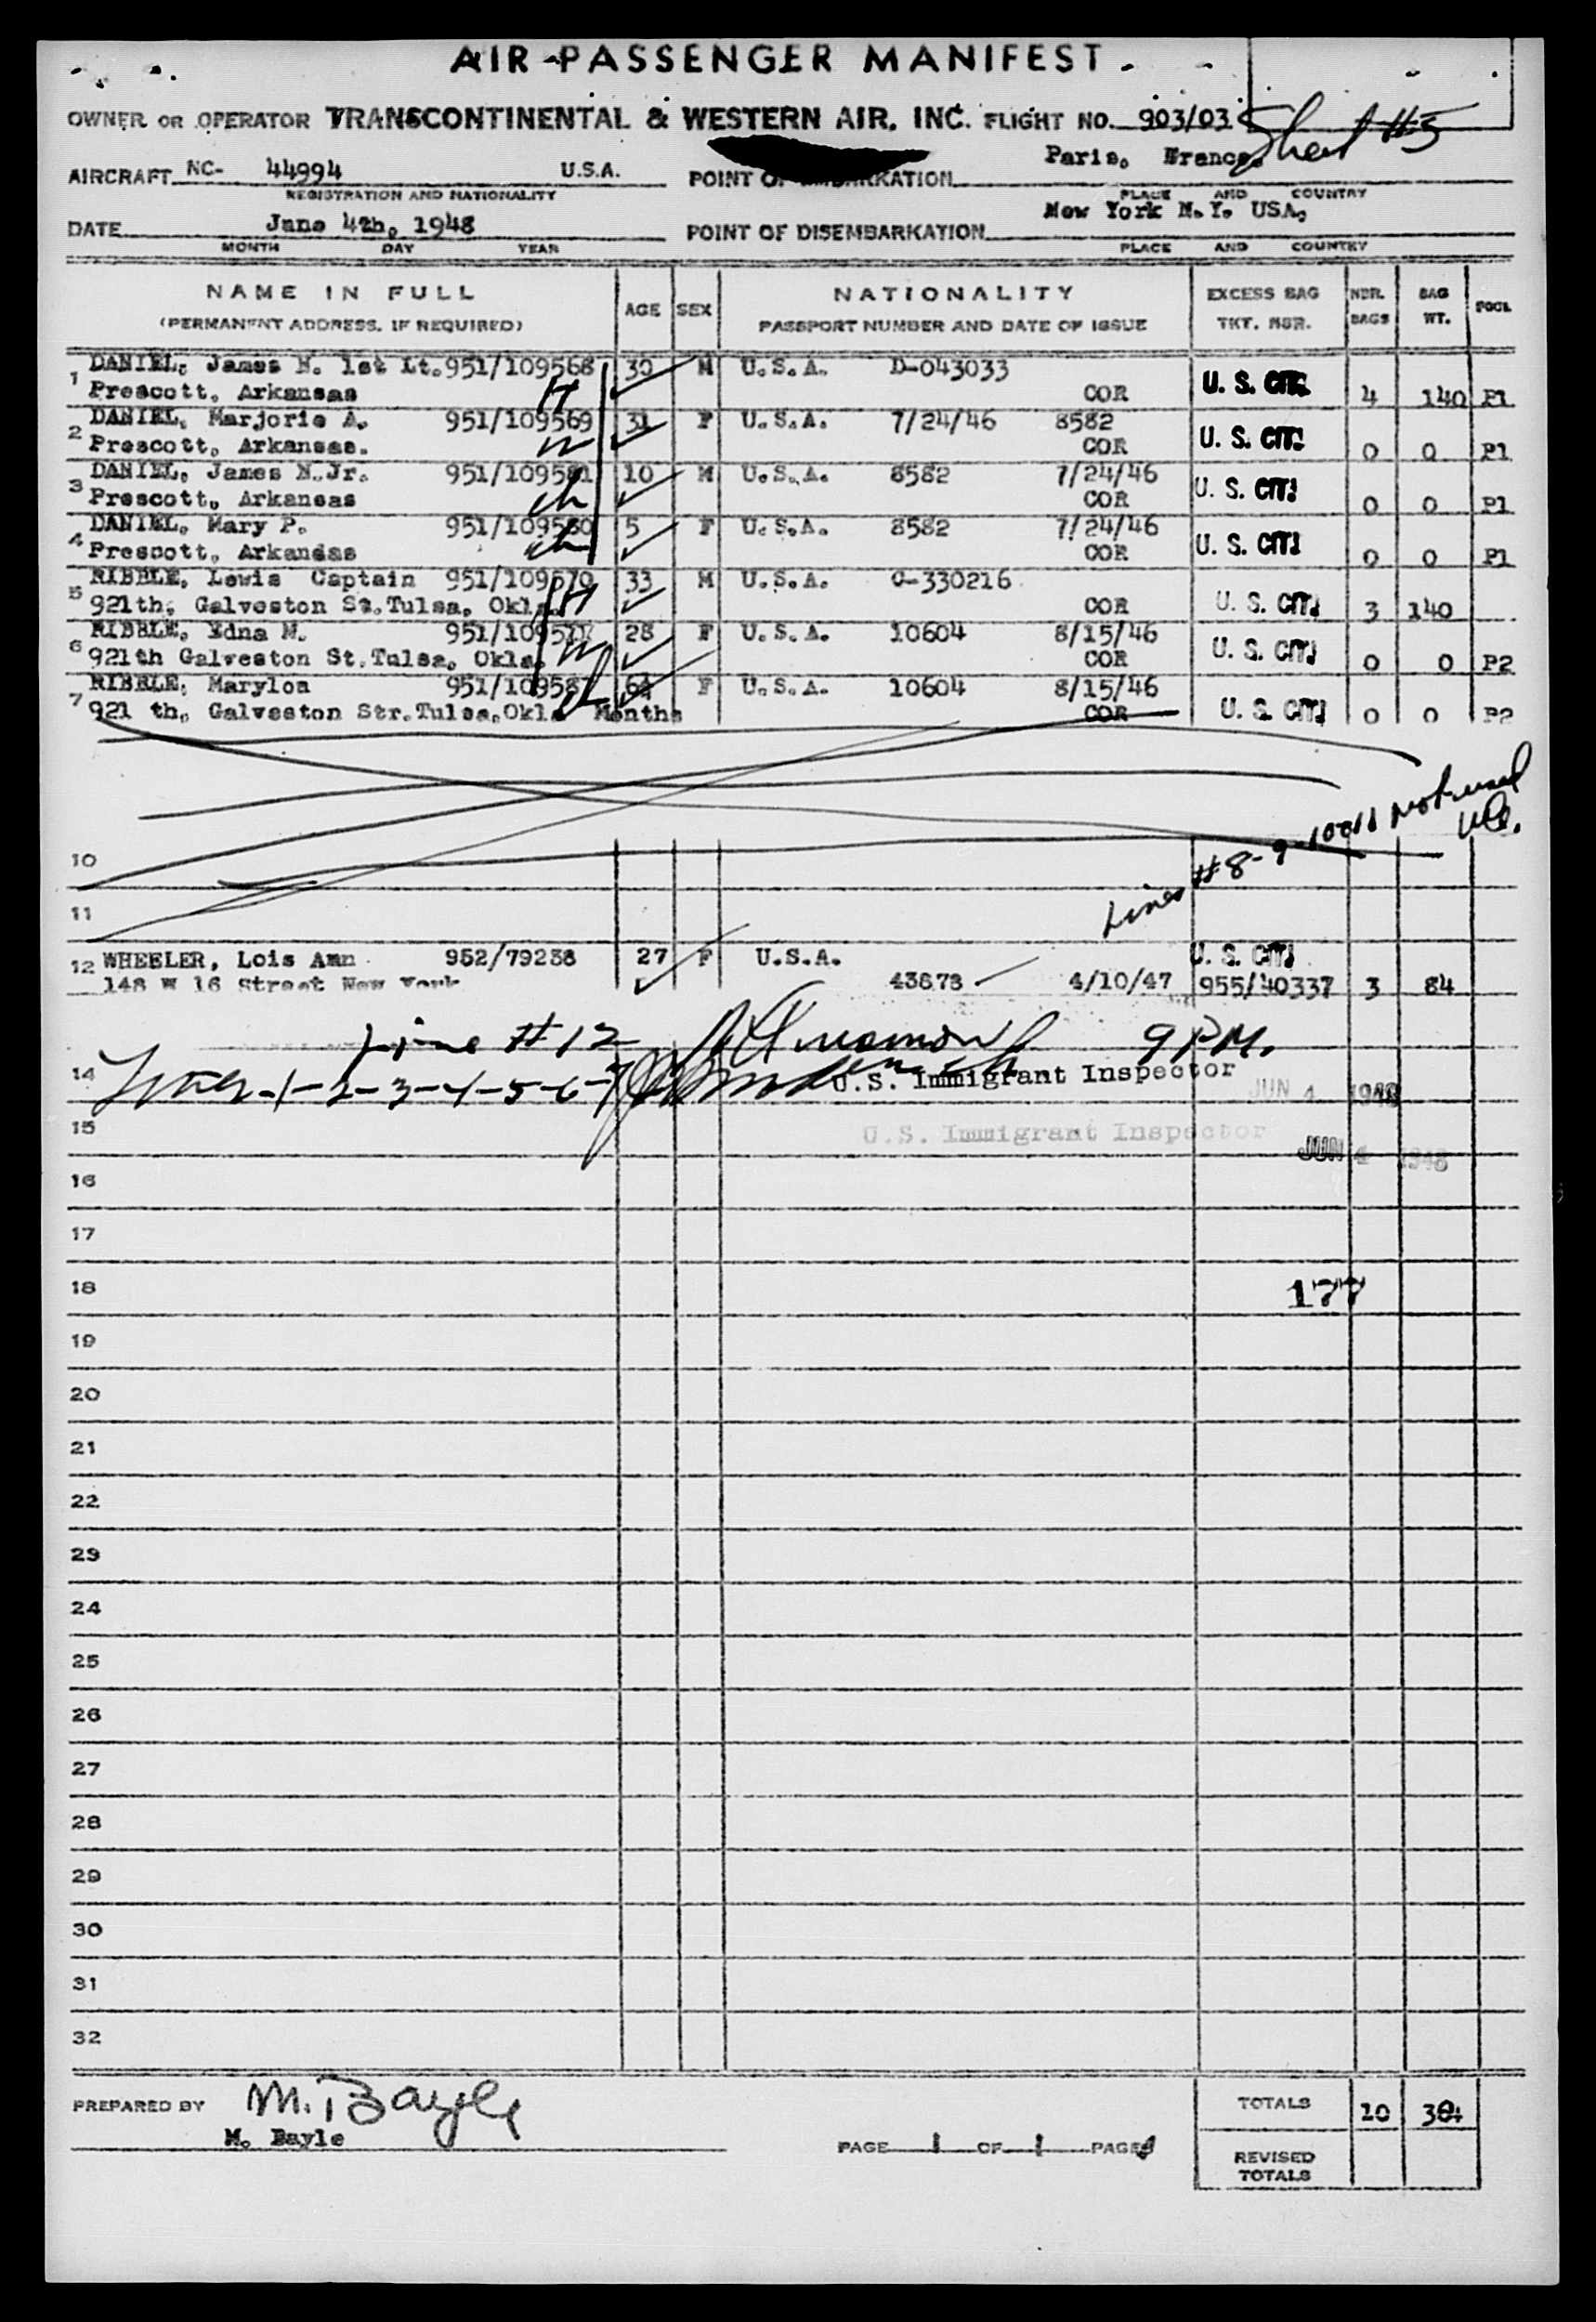 AIR PASSENGER MANIFEST
OWNER OR OPERATOR TRANSCONTINENTAL & WESTERN AIR, INC. FLIGHT NO. 903/03 Sheet #5
AIRCRAFT NC- 44994 U.S.A. POINT OF EMBARKATION Paris, France.
REGISTRATION AND NATIONALITY PLACE AND COUNTRY
DATE June 4th, 1948 POINT OF DISEMBARKATION New York N.Y. USA,
MONTH DAY YEAR PLACE AND COUNTRY
NAME IN FULL AGE SEX NATIONALITY EXCESS BAG NBR. BAG
(PERMANENT ADDRESS, IF REQUIRED) PASSPORT NUMBER AND DATE OF ISSUE TKT. NBR. BAGS WT.
1 DANIEL, James N. 1st Lt. 951/109568 30 M U.S.A. D-043033
Prescott, Arkansas COR U. S. CIT. 4 140 P1
2 DANIEL, Marjorie A. 951/109569 31 F U.S.A. 7/24/46 8582
Prescott, Arkansas. COR U. S. CIT. 0 0 P1
3 DANIEL, James N.Jr. 951/109581 10 M U.S.A. 8582 7/24/46
Prescott, Arkansas COR U. S. CIT. 0 0 P1
4 DANIEL, Mary P. 951/109580 5 F U.S.A. 8582 7/24/46
Prescott, Arkansas COR U. S. CIT. 0 0 P1
5 RIBBLE, Lewis Captain 951/109570 33 M U.S.A. O-330216
921th, Galveston St.Tulsa, Okla. COR U. S. CIT. 3 140
6 RIBBLE, Edna M. 28 F U.S.A. 10604 8/15/46
921th Galveston St.Tulsa, Okla. COR U. S. CIT. 0 0 P2
7 RIBBLE, Maryloa F U.S.A. 10604 8/15/46
921 th, Galveston Str.Tulsa,Okla Months COR U. S. CIT. 0 0 P2
Lines #8-9-10&11 not used
10
11
12 WHEELER, Lois Ann 952/79238 27 F U.S.A. U. S. CIT.
148 W 16 Street New York 43878 4/10/47 955/40337 3 84
Line #12 9 P.M.
14 Lines-1-2-3-4-5-6-7 U.S. Immigrant Inspector JUN 4 1948
15 U.S. Immigrant Inspector JUN 4 1948
16
17
18 177
19
20
21
22
23
24
25
26
27
28
29
30
31
32
PREPARED BY M. Bayle TOTALS 10
M. Bayle
PAGE 1 OF 1 PAGES
REVISED
TOTALS